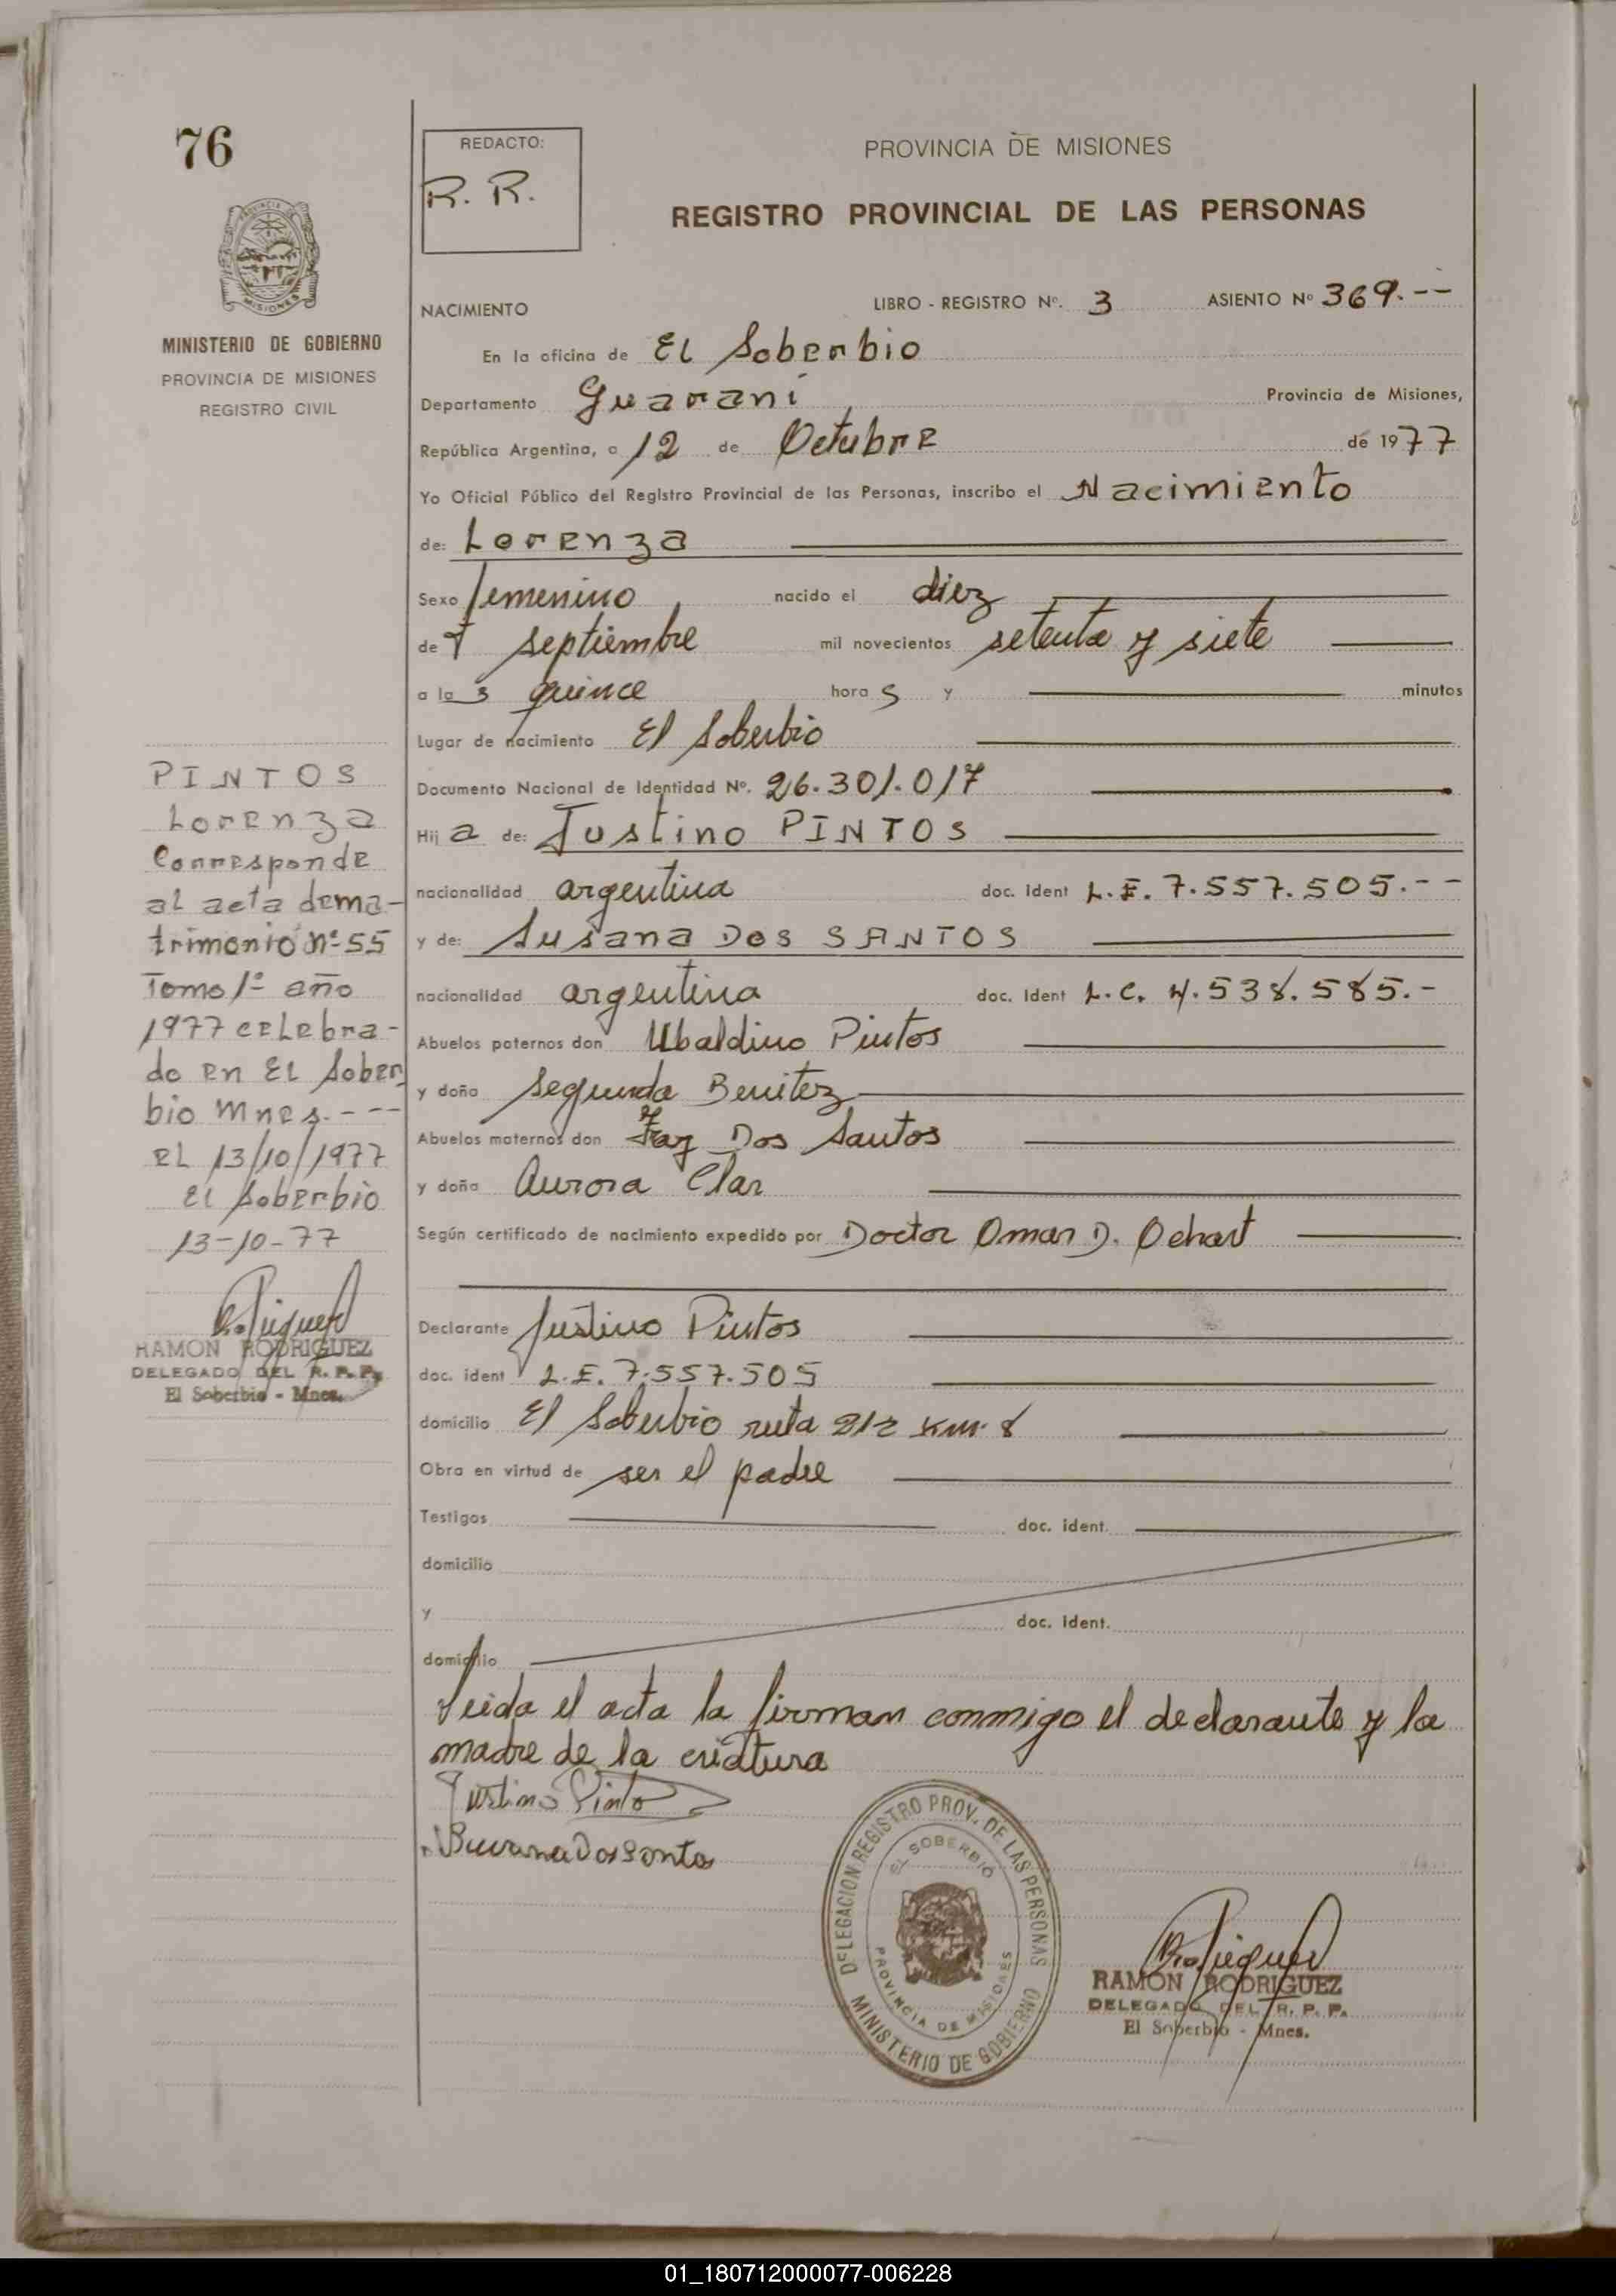 76
REDACTO:
R. R.
PROVINCIA DE MISIONES
REGISTRO PROVINCIAL DE LAS PERSONAS
MINISTERIO DE GOBIERNO
PROVINCIA DE MISIONES
REGISTRO CIVIL
NACIMIENTO LIBRO - REGISTRO Nº. 3 ASIENTO Nº 369.--
En la oficina de El Soberbio
Departamento Guarani Provincia de Misiones,
República Argentina, a 12 de Octubre de 1977
Yo Oficial Público del Registro Provincial de las Personas, inscribo el Nacimiento
de: Lorenza
Sexo femenino nacido el diez
de septiembre mil novecientos setenta y siete
a las quince horas y minutos
Lugar de nacimiento El Soberbio
Documento Nacional de Identidad Nº. 26.301.017
Hija de: Justino PINTOS
nacionalidad argentina doc. Ident L.E. 7.557.505.--
y de: Susana Dos SANTOS
nacionalidad argentina doc. Ident L.C. 4.538.585.-
Abuelos paternos don Ubaldino Pintos
y doña Segunda Benitez
Abuelos maternos don Dos Santos
y doña Aurora Clar
Según certificado de nacimiento expedido por Doctor Omar D. Ochart
Declarante Justino Pintos
doc. ident L.E. 7.557.505
domicilio El Soberbio ruta 212 Km. 8
Obra en virtud de ser el padre
Testigos doc. ident.
domicilio
y doc. Ident.
domicilio
Leida el acta la firman conmigo el declarante y la
madre de la criatura
Justino Pinto
Susana Dos Santo
DELEGACION REGISTRO PROV. DE LAS PERSONAS
EL SOBERBIO
PROVINCIA DE MISIONES
MINISTERIO DE GOBIERNO
RAMON RODRIGUEZ
DELEGADO DEL R. P. P.
El Soberbio - Mnes.
PINTOS
Lorenza
Corresponde
al acta de ma-
trimonio nº 55
Tomo 1º año
1977 celebra-
do en El Sober
bio Mnes.---
el 13/10/1977
El Soberbio
13-10-77
RAMON RODRIGUEZ
DELEGADO DEL R. P. P.
El Soberbio - Mnes.
01_180712000077-006228